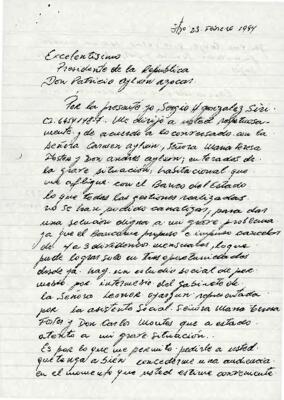 Stgo 23 Febrero 1994
Excelentisimo
Presidente de la Republica
Don Patricio Aylwin Azocar
Por la presente yo, Sergio H gonzalez
me dirijo a usted respetuosa-
mente, y de acuerdo a lo conversado con la
señora Carmen Aylwin, Señora Maria Teresa
y Don Andres Aylwin; enterados de
la grave situación, habitacional que
me aflige con el Banco del Estado
lo que todas las gestiones realizadas
no se han podido canalizar, para dar
una solución digna a mi grave problema
ya que el Banco me propuso e impuso cancelar
de 4 a 5 dividendos mensuales, lo que
pude lograr solo en tres oportunidades
desde ya hay un estudio social de por
medio por intermedio del gabinete de
la Señora Leonor Oyarzun representada
por la asistente Social Señora Maria Teresa
y Don Carlos Montes que a estado
atento a mi grave situación.
Es por lo que me permito pedirle a usted
que tenga a bien concederme una audiencia
en el momento que usted estime conveniente